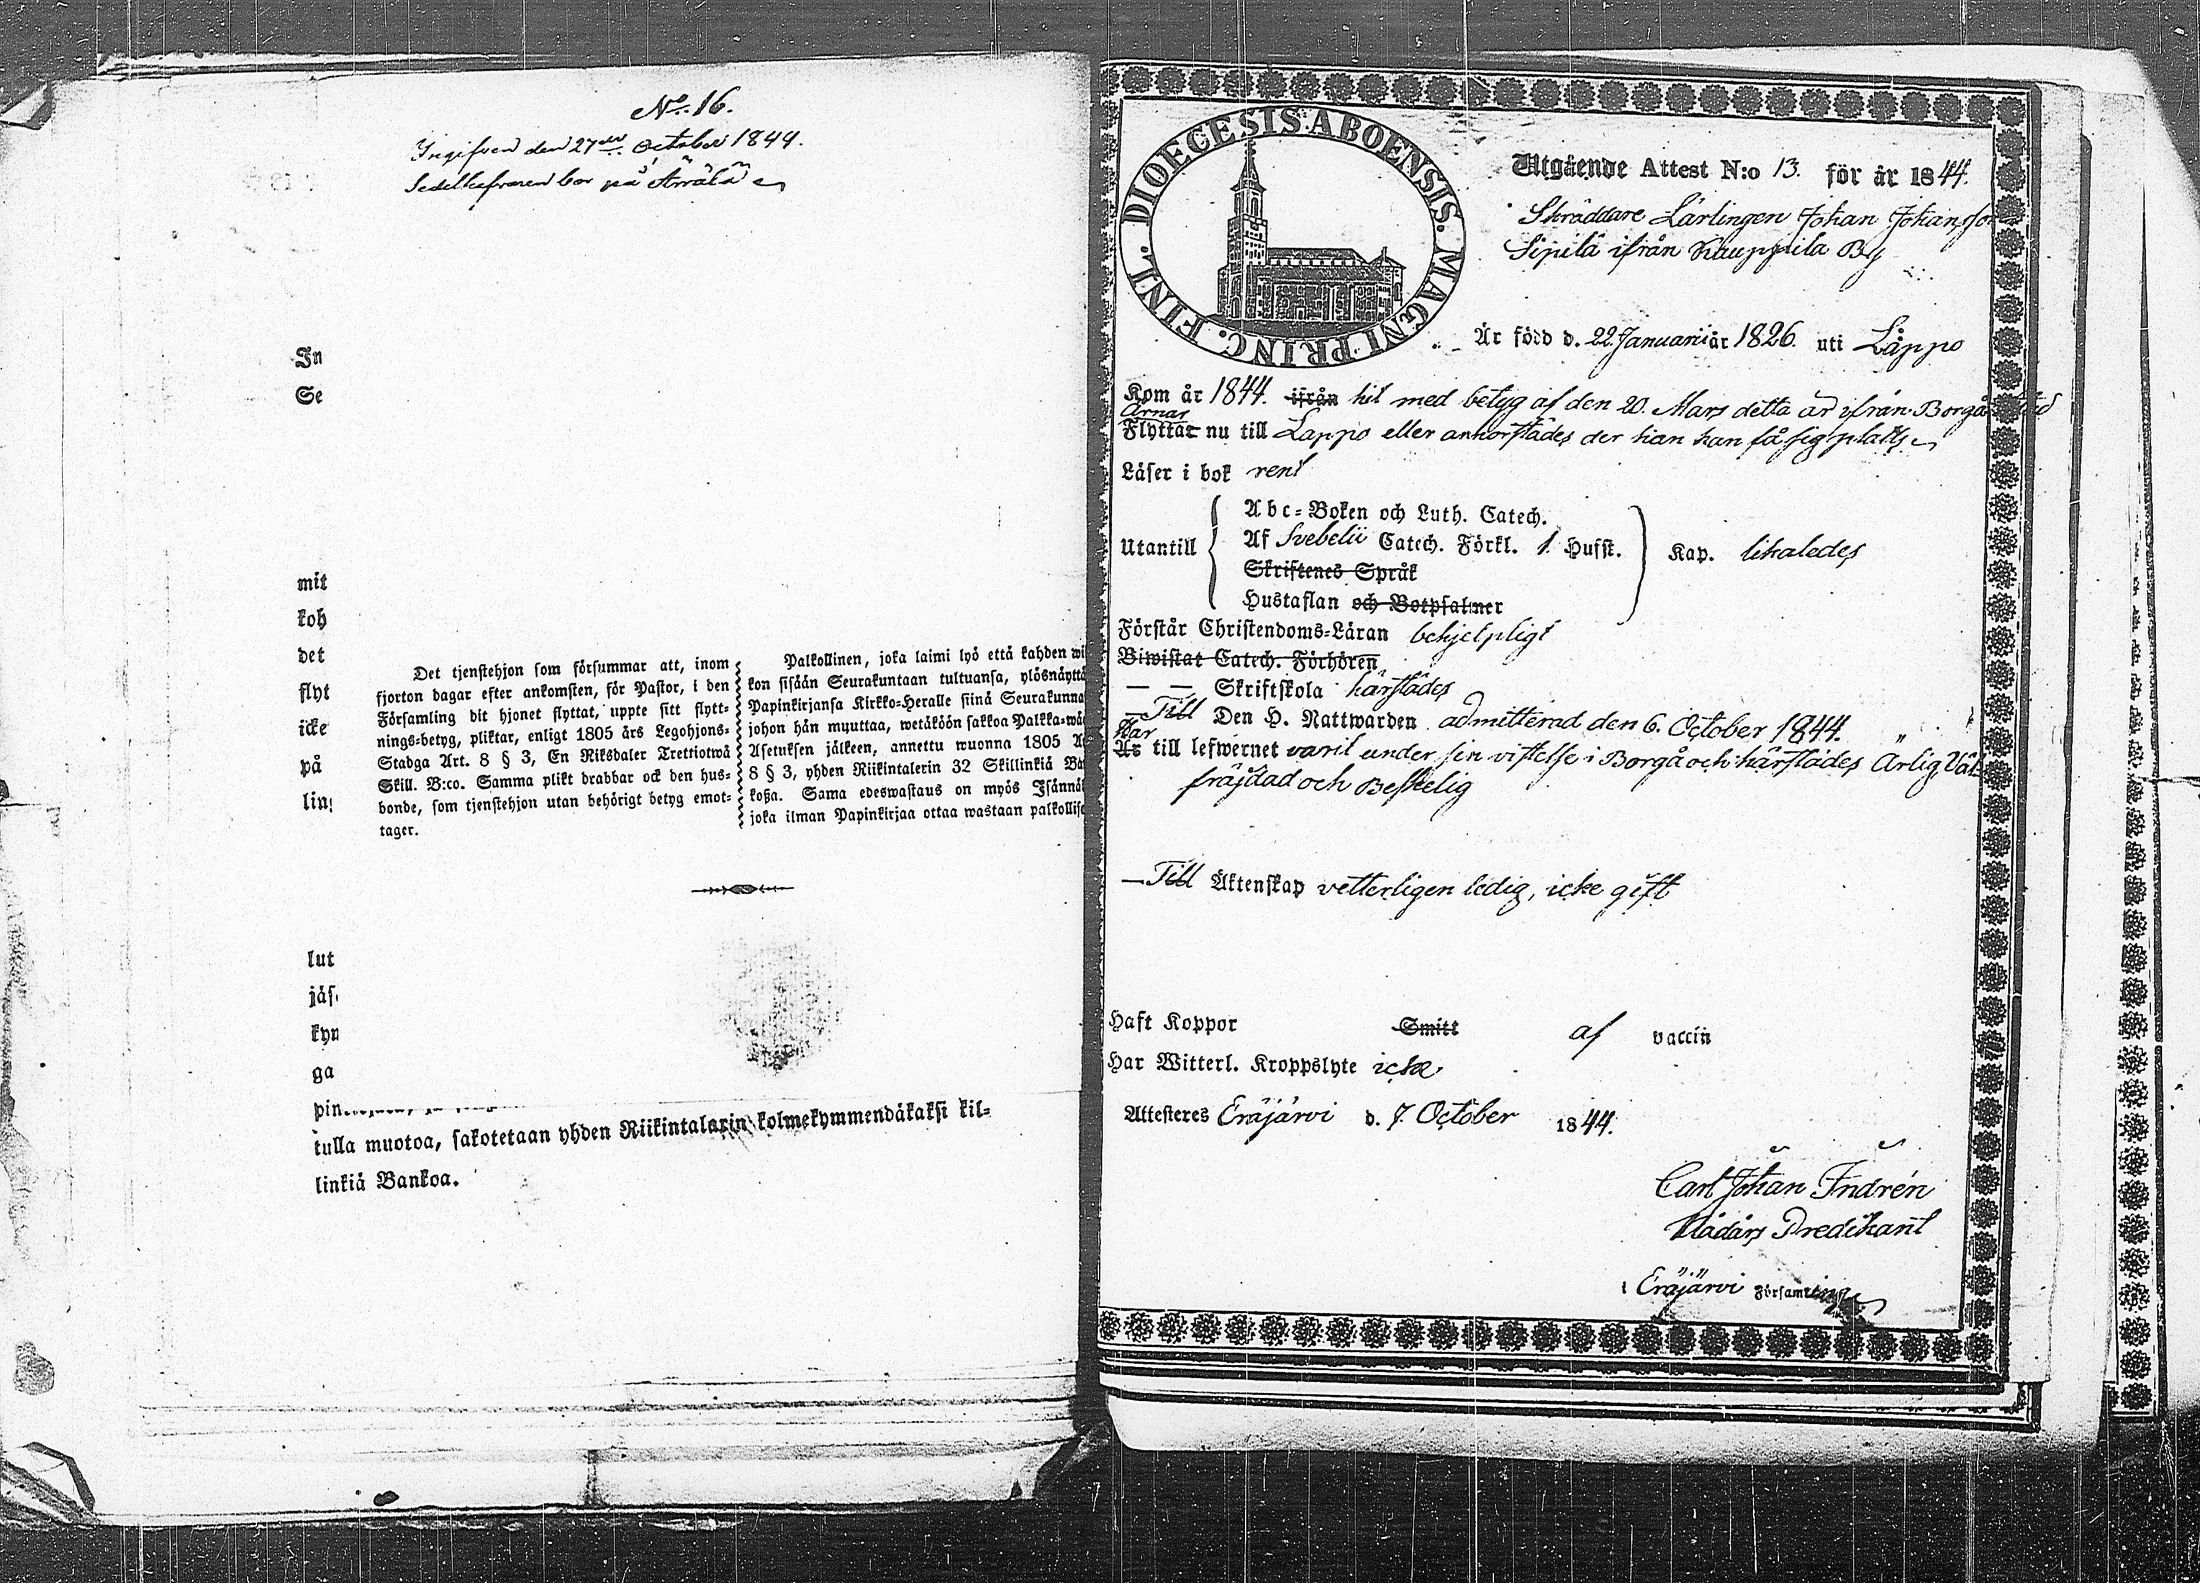 No. 16.
Ingifven den 27de October 1844.
Sedelhafvaren bor på Arrälä
In
Se
mit
koh
det
flyt
icke
på
lin
Det tjenstehjon som försummar att, inom
fjorton dagar efter ankomsten, för Pastor, i den
Församling dit hjonet flyttat, uppte sitt flytt-
nings-betyg, pliktar, enligt 1805 års Legohjons-
Stadga Art. 8 § 3, En Riksdaler Trettiotwå
Skill. B:co. Samma plikt drabbar ock den hus-
bonde, som tjenstehjon utan behörigt betyg emot-
tager.
Palkollinen, joka laimi lyö että kahden wii
kon sisään Seurakuntaan tultuansa, ylösnäyttä
Papinkirjansa Kirkko-Heralle siinä Seurakunna
johon hän muuttaa, wetäköön sakkoa Palkka-wä
Asetuksen jälkeen, annettu wuonna 1805 A
8 § 3, yhden Riikintalerin 32 Skillinkiä Ba
koßa. Sama edeswastaus on myös Isännä
joka ilman Papinkirjaa ottaa wastaan palkollise
lut
jäs
kyn
ga
pin
tulla muotoa, sakotetaan yhden Riikintalarin kolmekymmendäkaksi kil-
linkiä Bankoa.
DIOECESIS ABOENSIS. MAGNI PRINC. FINL.
Utgående Attest N:o 13. för år 1844.
Skräddare Lärlingen Johan Johansson
Sipilä ifrån Kauppila By
Är född d. 22 Januarii år 1826. uti Lappo
Kom år 1844. ifrån hit med betyg af den 20. Mars detta år ifrån Borgå Stad
Ärnar
Flyttar nu till Lappo eller annorstädes der han kan få sig plats
Läser i bok rent
Utantill
Abc-Boken och Luth. Catech.
Af Svebelii Catech. Förkl. 1 Hufst.
Skriftenes Språk
Hustaflan och Botpsalmer
Kap. likaledes
Förstår Christendoms-Läran behjelpligt
Biwistat Catech. Förhören
— — Skriftskola härstädes
— Till Den H. Nattwarden admitterad den 6. October 1844.
Har
Är till lefwernet varit under sin vistelse i Borgå och härstädes Ärlig, Väl-
fräjdad och Beskelig
— Till Äktenskap vetterligen ledig, icke gift
Haft Koppor Smitt af vaccin
Har Witterl. Kroppslyte icke
Attesteres Eräjärvi d. 7. October 1844.
Carl Johan Indrén
Nådårs Predikant
i Eräjärvi Församling